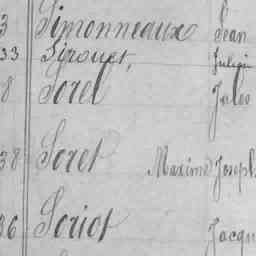 3 Simonneaux Jean
33 Sirouet, Julien
8 Sorel Jules
38 Soret Maxime Joseph
36 Soriot Jacqu